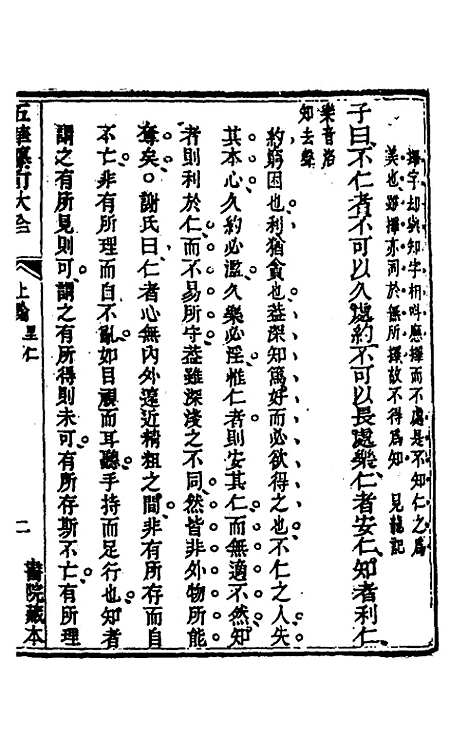 擇字却與知字相呼應擇而不處是不知仁之爲
美也雖擇亦同於無所擇故不得爲知 見龍記
子曰不仁者不可以久處約不可以長處樂仁者安仁知者利仁
樂音洛
知去聲
約窮困也利猶貪也葢深知篤好而必欲得之也不仁之人失
其本心久約必濫久樂必淫惟仁者則安其仁而無適不然知
者則利於仁而不易所守葢雖深淺之不同然皆非外物所能
奪矣謝氏曰仁者心無內外遠近精粗之間非有所存而自
不亡非有所理而自不亂如目視而耳聽手持而足行也知者
謂之有所見則可謂之有所得則未可有所存斯不亡有所理
五華纂訂大全
上論 里仁
二
書院藏本